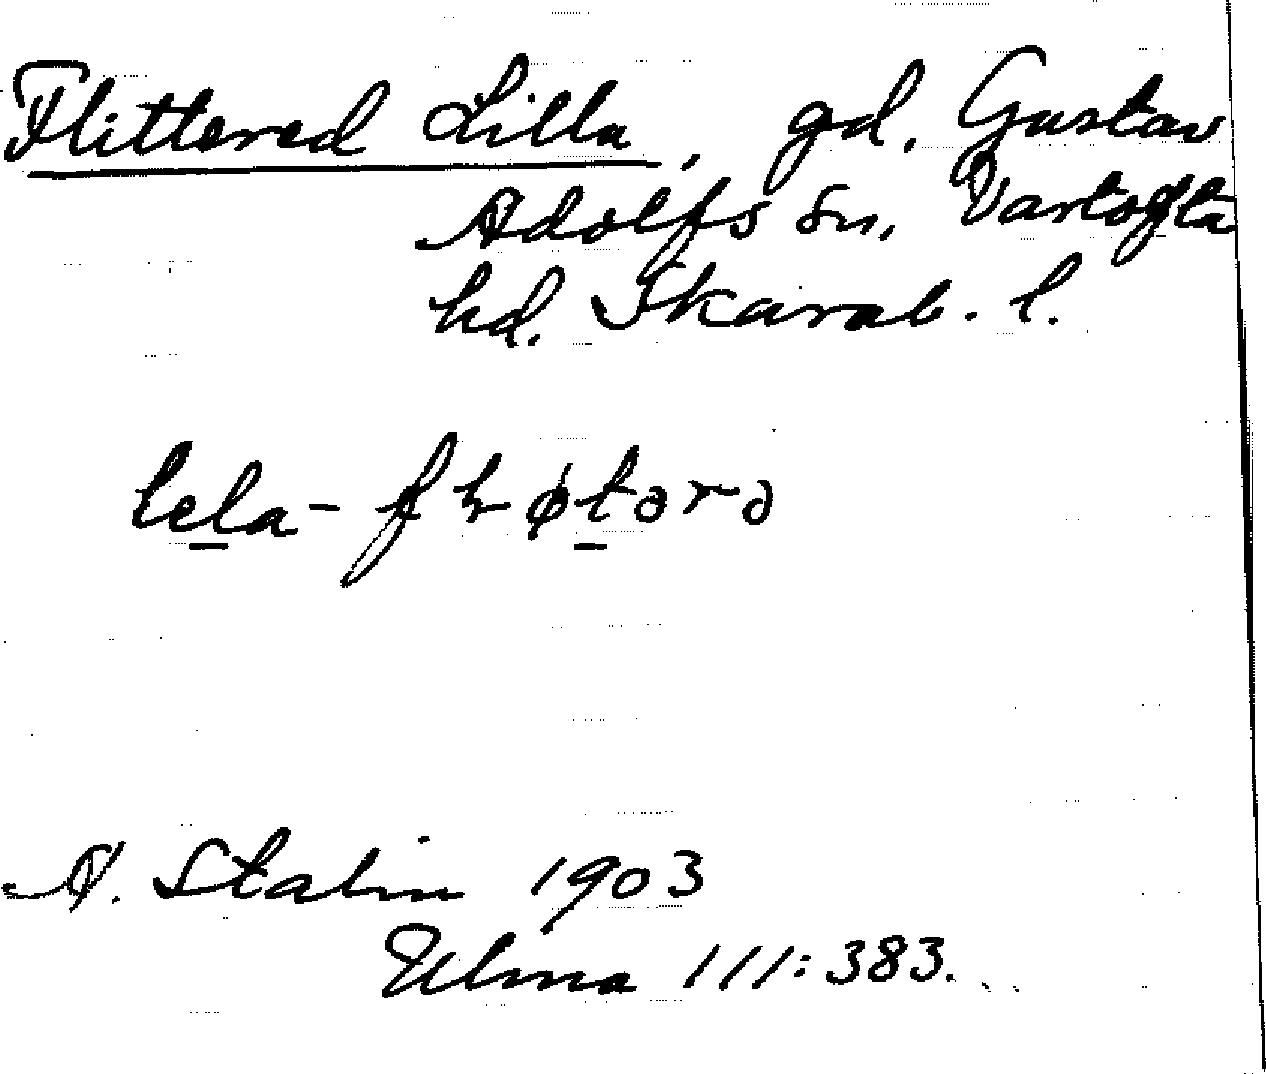 Flittered Lilla, gd. Gustav
Adolfs sn, Vartofta
hd. Skarab. l.
lela-
A. Stalin 1903
Ulma 111:383.